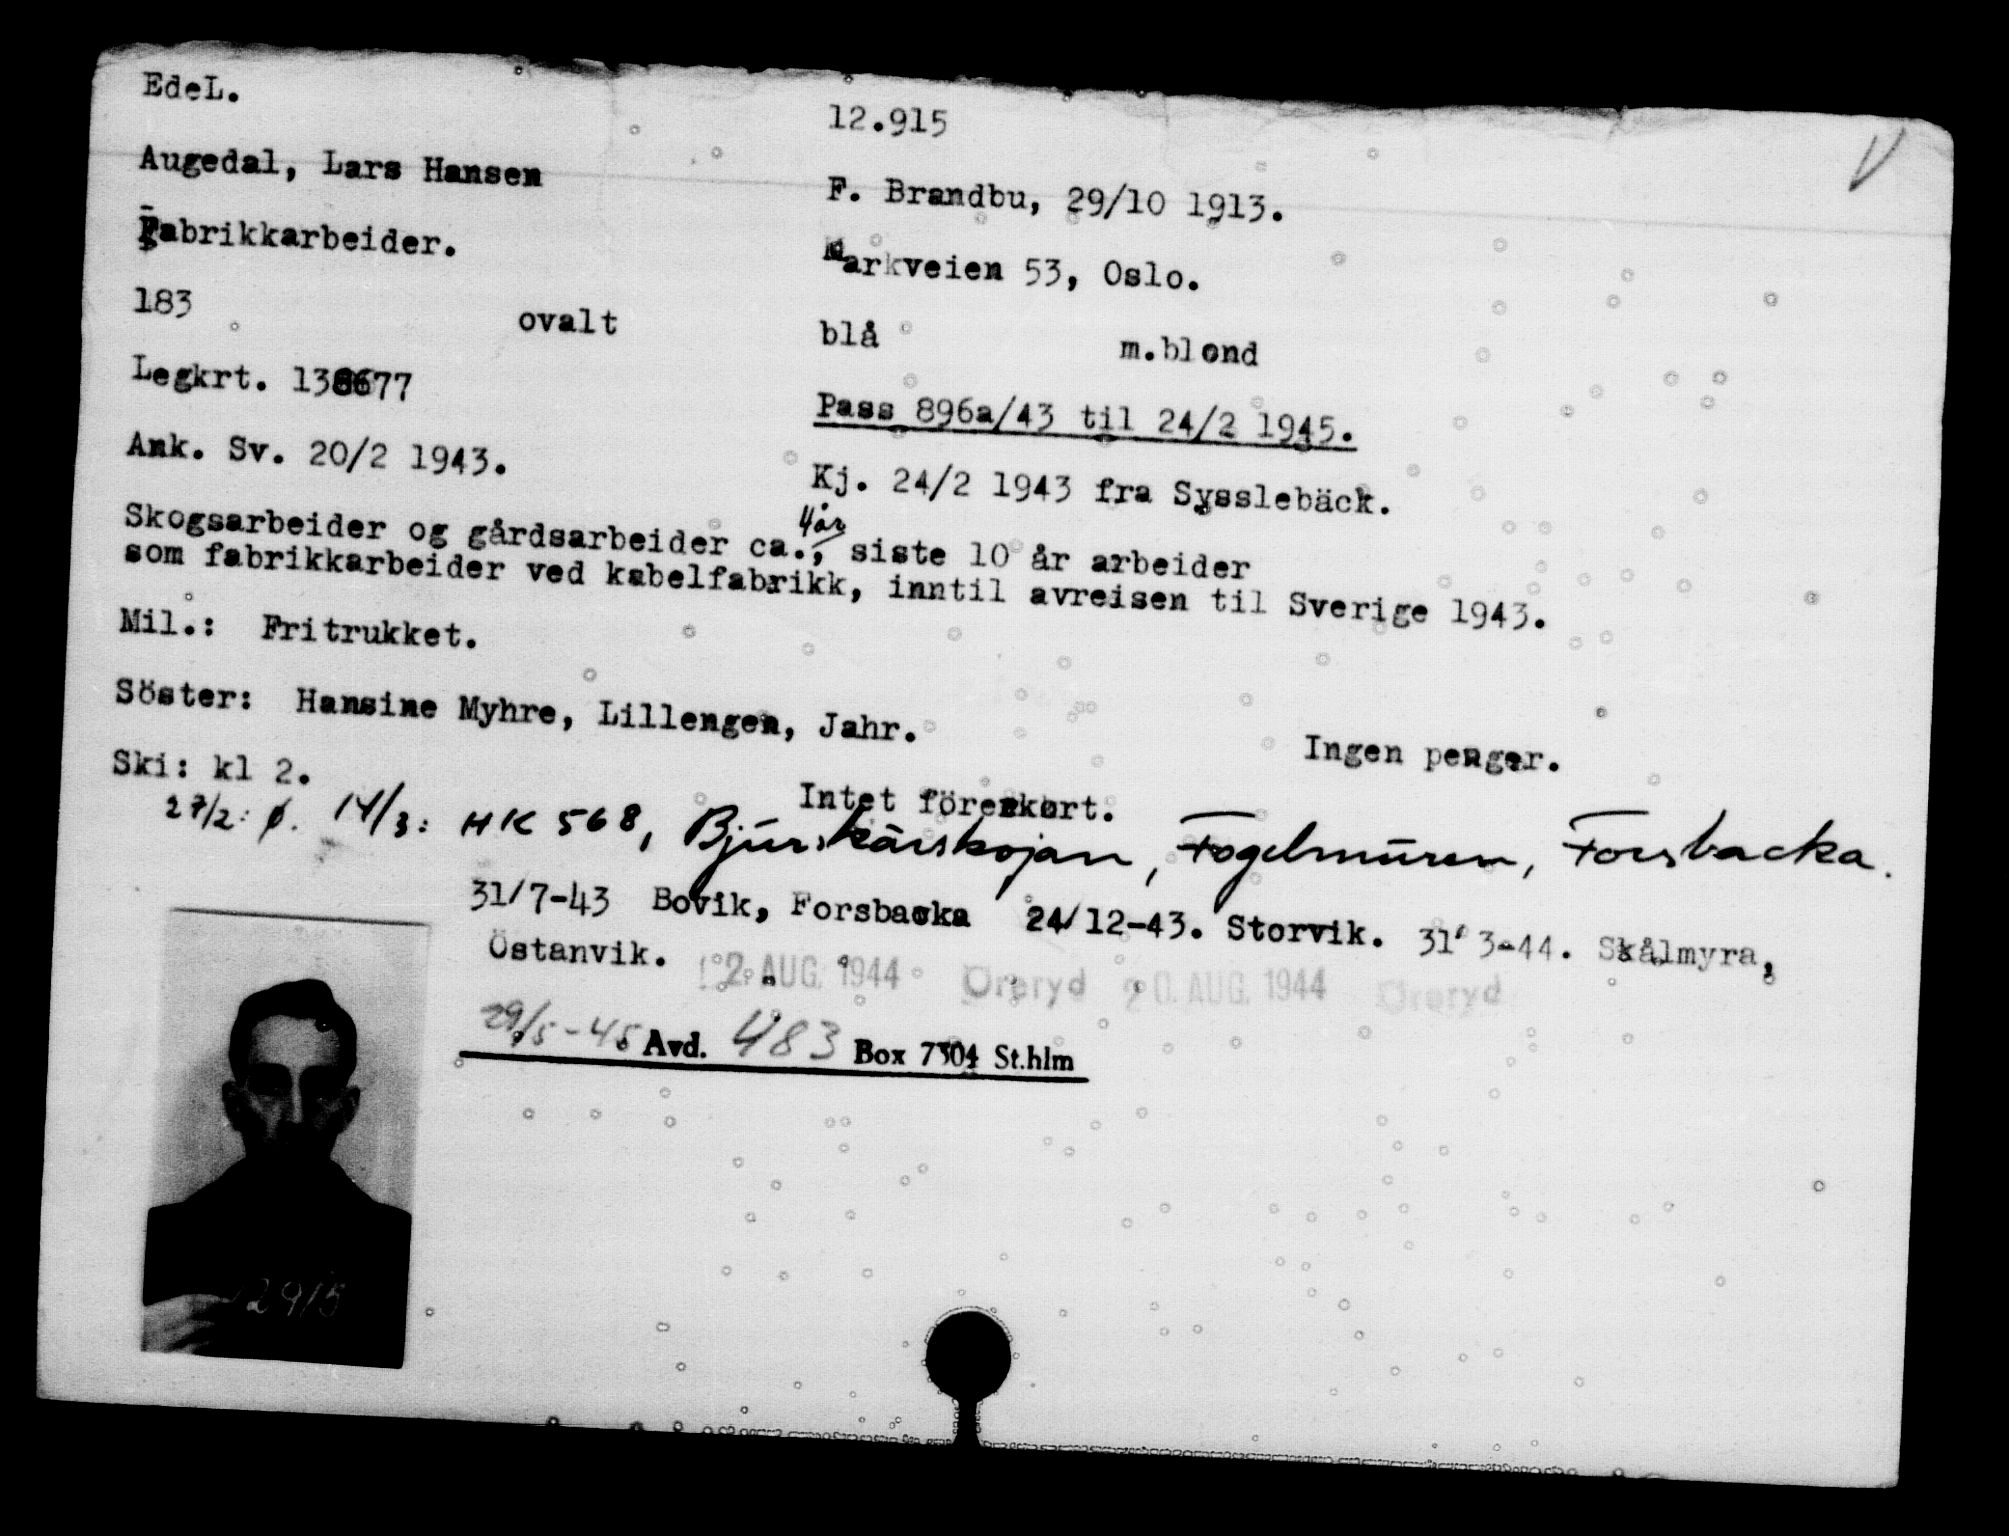 EdeL.
12.915
Augedal, Lars Hansen
F. Brandbu, 29/10 1913.
Fabrikkarbeider.
Markveien 53, Oslo.
183 ovalt
blå m.blond
Legkrt. 138677
Pass 896a/43 til 24/2 1945.
Ank. Sv. 20/2 1943.
Kj. 24/2 1943 fra Sysslebäck.
4 år
Skogsarbeider og gårdsarbeider ca., siste 10 år arbeider
som fabrikkarbeider ved kabelfabrikk, inntil avreisen til Sverige 1943.
Mil.: Fritrukket.
Söster: Hansine Myhre, Lillengen, Jahr.
Ingen penger.
Ski: kl 2.
Intet förerkort.
27/2: Ø. 14/3: HK 568, Bjurskärskojan, Fogelmuren, Forsbacka.
31/7-43 Bovik, Forsbacka 24/12-43. Storvik. 31/3-44. Skålmyra,
Östanvik.
12 AUG. 1944 Öreryd 20. AUG. 1944 Öreryd
29/5-45 Avd. 483 Box 7304 St.hlm
12915